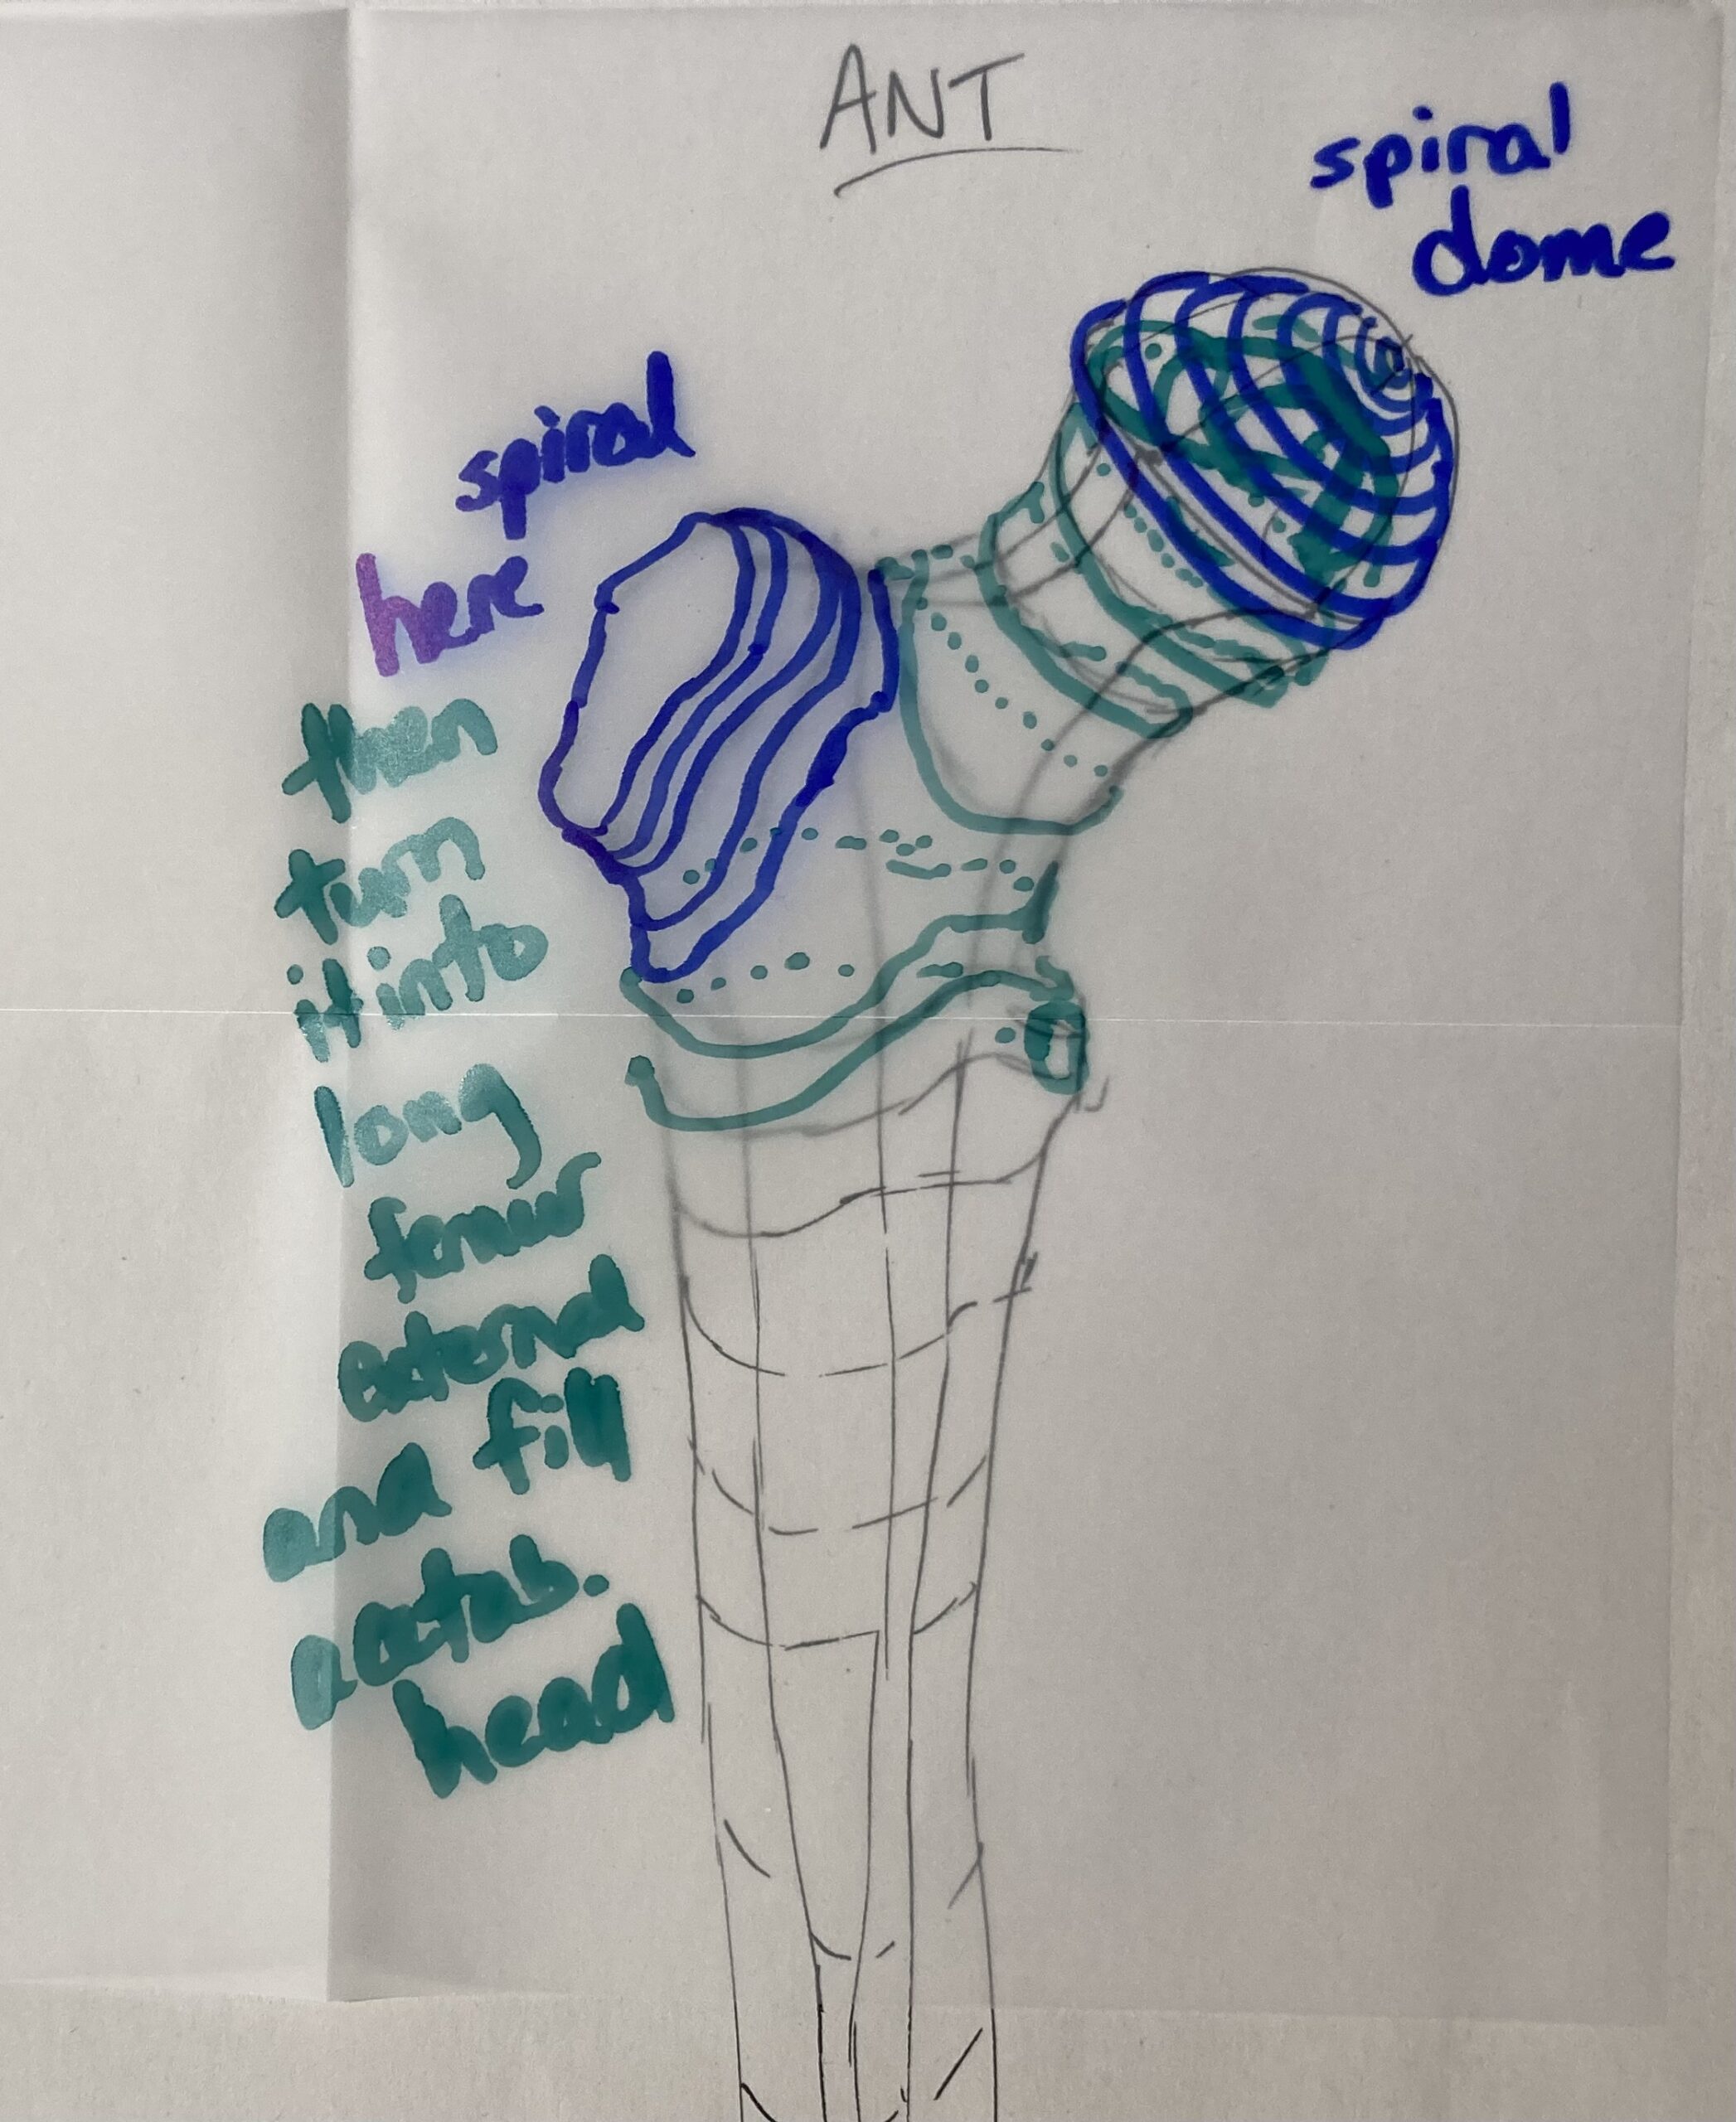 ANT
spiral
dome
spiral
here
then
turn
it into
long
femur
external
and fill
acetab.
head